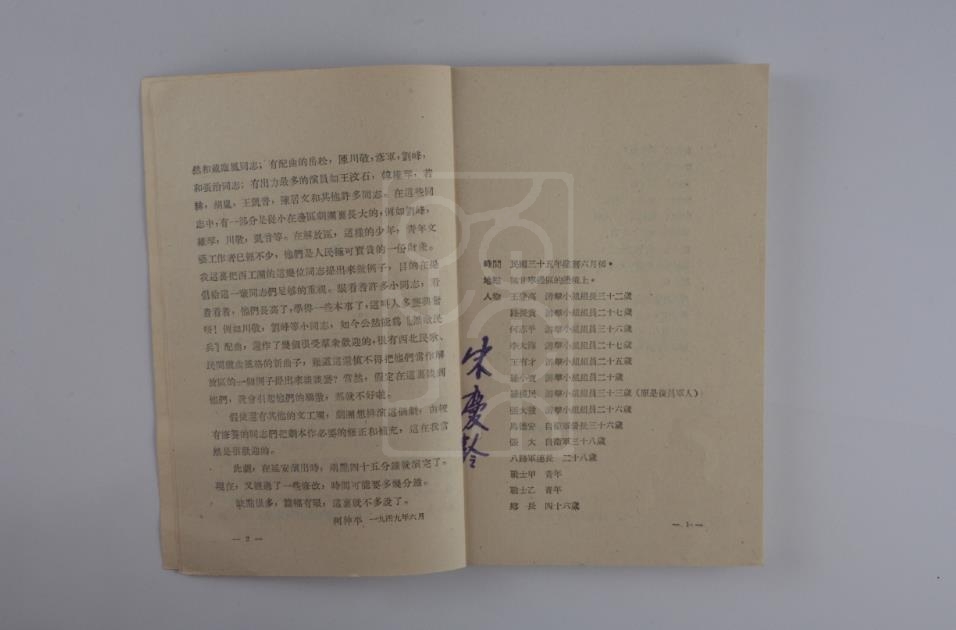 和張治同志;有出力最多的演員如王汶石,
王凱音,陳居文和其他許多同志。在這些同
志中,有一部分是從小在邊區劇團裏長大的,例如劉峰,
川敬,凱音等。在解放區,這樣的少年,青年文
工作者已經不少,他們是人民極可寶貴的一份財產。
我這裏把西工團的這幾位同志提出來做例子,目的在提
倡給這一輩同志們足够的重視。眼看着許多小同志,看
着看着,他們長高了,學得一些本事了,這叫人多
例如川敬,劉峰等小同志,如今公然能爲
配曲,還作了幾個很受羣衆歡迎的,很有西北民歌、
民間戲曲風格的新曲子,難道這還値不得把他們當作解
放區的一個例子提出來談談麽?當然,假定在這裏談到
他們,竟會引起他們的驕傲,那就不好啦。
假使還有其他的文工團,劇團想排演這個劇,
的同志們把劇本作必要的修正和補充,這在我當
然是很歡迎的。
此劇,在延安演出時,兩點四十五分鐘就演完了。
現在,又經過了一些修改,時間可能要多幾分鐘。
缺點很多,篇幅有限,這裏就不多說了。
柯仲平 一九四九年六月
— 2 —
宋慶齡
時間 民國三十五年 六月初。
地點 陝甘寧邊區的邊境上。
人物 王登高 小組組長三十二歲
小組組員二十七歲
何志平 小組組員三十六歲
李大海 小組組員二十七歲
王有才 小組組員二十五歲
小組組員二十歲
小組組員三十三歲(原是復員軍人)
張大發 小組組員二十六歲
馬德安 自衛軍營長三十六歲
張大 自衛軍三十八歲
八路軍連長 二十八歲
戰士甲 青年
戰士乙 青年
鄉長 四十六歲
— 1 —